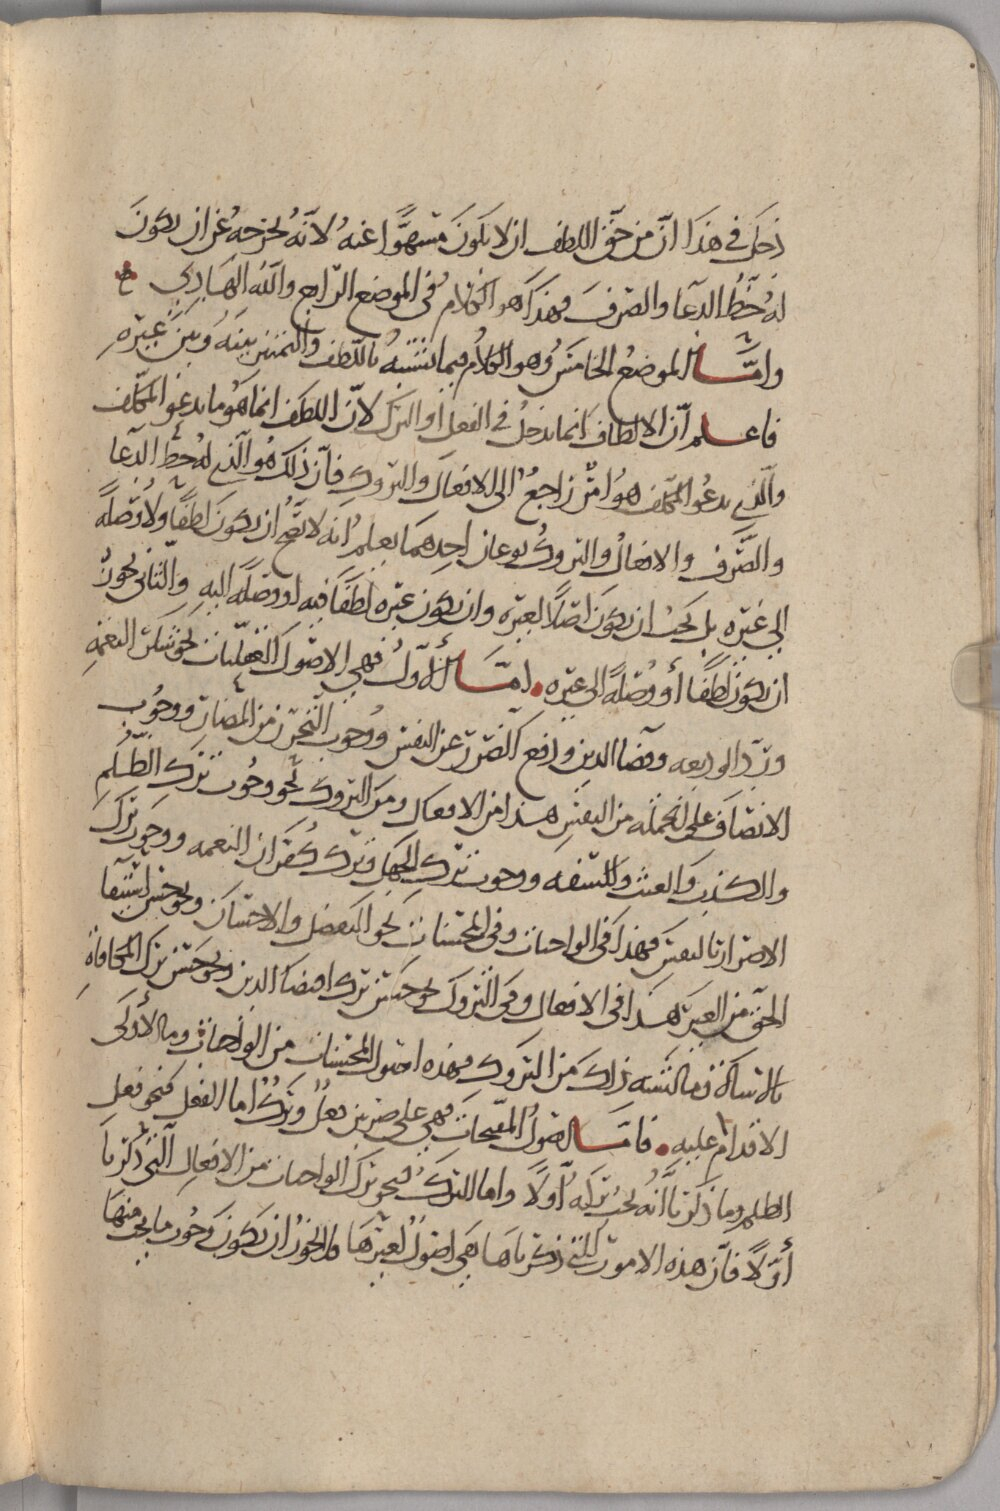 دخل في هذا انّ من حقّ اللطف ان لا يكون مسهوًّا عنهُ لانّه يخرجه عن ان يكونَ
لهُ حظُّ الدعا والصرف فهذا هو الكلام في الموضع الرابع والله الهادي
وامّا الموضع الخامس وهو الكلام فيما يشتبه باللطف والتمييز بينه وبين غيره
فاعلم انّ الالطاف انما تدخل في الفعل او الترك لانّ اللطف انما هو ما يدعو المكلف
والّذي يدعو المكلف هو امر راجع الى الافعال والتروك فانّ ذلك هو الّذي له حظّ الدعا
والصّرف والافعال والتروك نوعان احدهما يعلم انه لا يصحّ ان يكون لطفًا ولا وصلةً
الى غيره بل يجب ان يكون اصلا لغيره وان يكون غيره لطفًا فيه او وصلة اليه والثاني يجوز
ان يكون لطفًا او وصلةً الى غيره امّا الأوّل فهي الاصول العقليات نحو شكر النعمة
وردّ الوديعه وقضا الدين ودفع الضرر عن النفس ووجوب التحرّز من المضارّ ووجوب
الانتصاف على الجملة من النفس هذا من الافعال ومن التروك نحو وجوب ترك الظلم
والكذب والعبث والسفه ووجوب ترك الجهل وترك كفران النعمه ووجوب ترك
الاضرار بالنفس فهذا في الواجبات وفي المحسنات نحو التفضل والاحسان ونحو حسن استيفا
الحقّ من الغير هذا في الافعال وفي التروك نحو حسن ترك اقتضا الدين ونحو حسن ترك المكافاة
بالاساة وما اشبه ذلك من التروك فهذه اصول المحسنات من الواجبات وما الأولى
الاقدام عليه فامّا اصول المقبحات فهي على ضربين فعلٌ وتركٌ اما الفعل فنحو فعل
الظلم وما ذكرنا انه يجب تركه أوّلًا واما الترك فنحو ترك الواجبات من الافعال الّتي ذكرنا
أوّلًا فانّ هذه الامور التي ذكرناها هي اصول لغيرها فلا يجوز ان يكون وجوب ما يجب منها